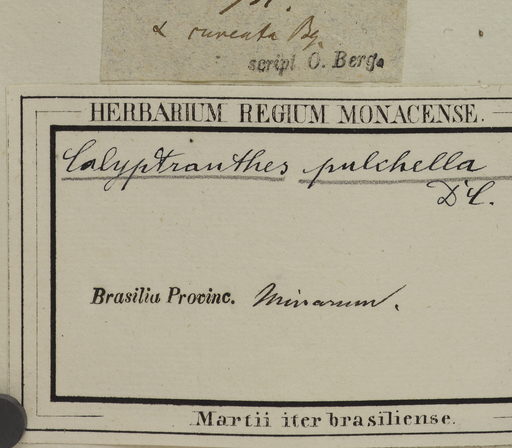 α cuneata Bg.
scripl O. Berg.
HERBARIUM REGIUM MONACENSE.
Calyptranthes pulchella
DC.
Brasilia Provinc. Minarum.
Martii iter brasiliense.